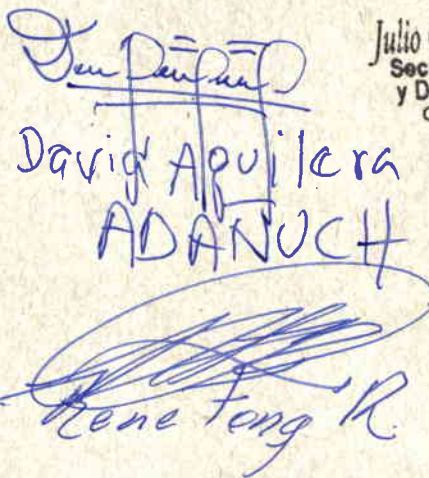 Julio
Sec
y D
David Aguilera
ADANUCH
Rene Fong R.